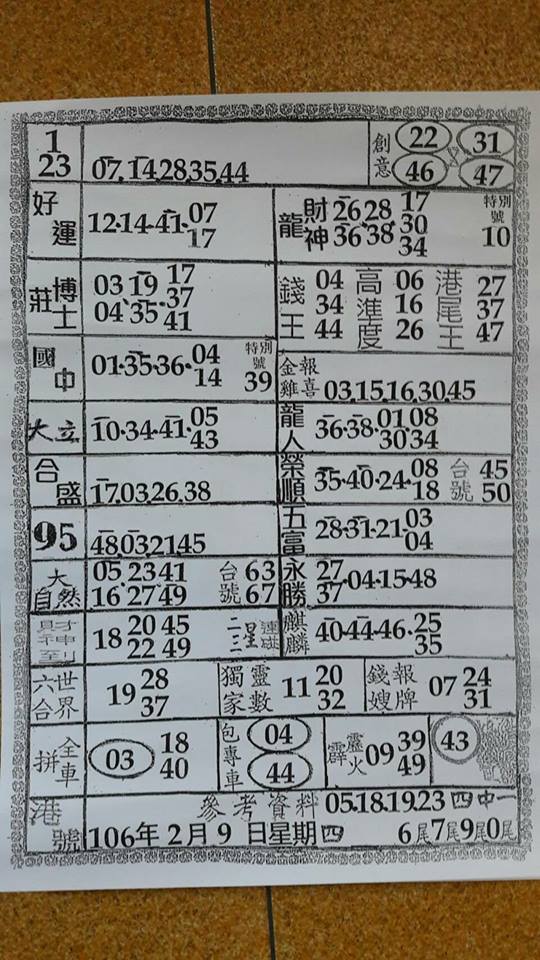 1
23
07,14,28,35,44
創意
22 31
46 47
好運
12·14·41·07
17
龍
財神
26 28 17
36·38·30
34
特別號
10
莊博士
03 19 17
04·35·37
41
錢王
04
34
44
高準度
06
16
26
港尾王
27
37
47
國中
01·35·36·04
14
特別號
39
金雞報喜
03,15,16,30,45
大立
10·34·41·05
43
龍人
36·38·01 08
30 34
合盛
17,03,26,38
榮順
35·40·24·08
18
台號
45
50
95
48,03,21,45
五富
28·31·21·03
04
大自然
05 23 41
16 27 49
台號
63
67
永勝
27
37·04·15·48
財神到
18 20 45
22 49
二三星連碰
麒麟
40·44·46·25
35
六合世界
19 28
37
獨家靈數
11 20
32
錢嫂報牌
07 24
31
拼全車
03
18
40
包專車
04
44
霹靂火
09 39
49
43
港號
參考資料 05.18.19.23 四中一
106年2月9 日星期四 6尾7尾9尾0尾